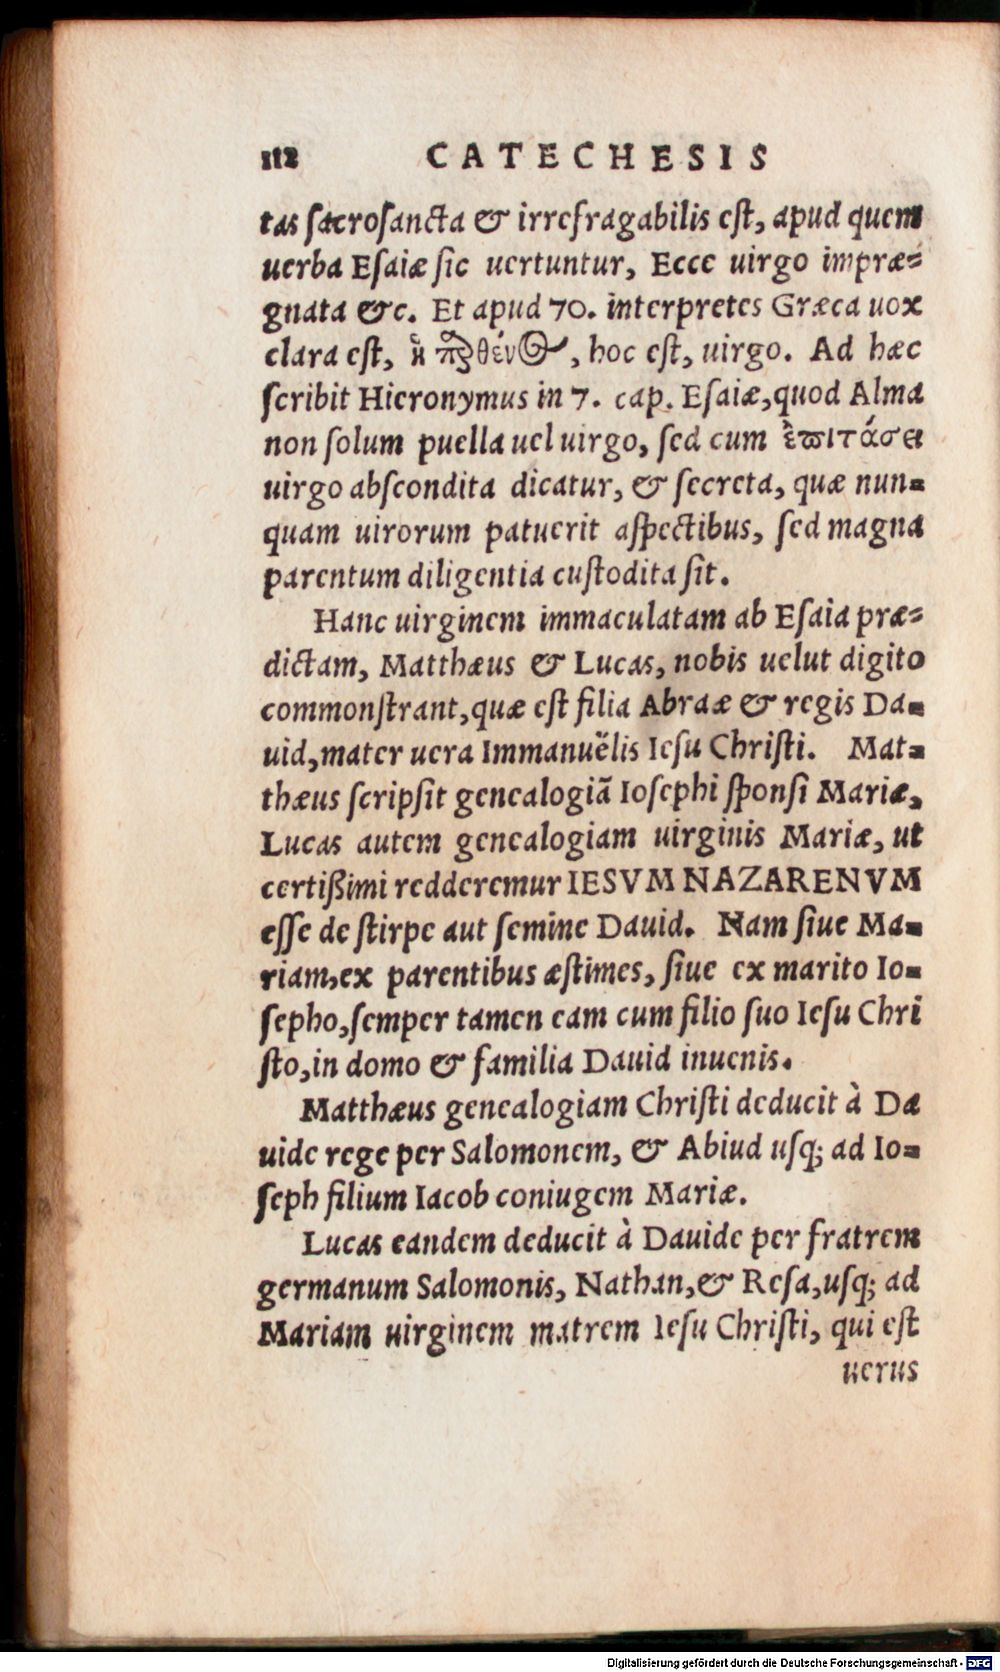 112 CATECHESIS
tas ſacroſancta & irrefragabilis eſt, apud quem
uerba Eſaiæ ſic uertuntur, Ecce uirgo impræ-
gnata &c. Et apud 70. interpretes Græca uox
clara eſt, ἡ παρθένος, hoc eſt, uirgo. Ad hæc
ſcribit Hieronymus in 7. cap. Eſaiæ, quod Alma
non ſolum puella uel uirgo, ſed cum ἐπιτάσει
uirgo abſcondita dicatur, & ſecreta, quæ nun-
quam uirorum patuerit aſpectibus, ſed magna
parentum diligentia cuſtodita ſit.
Hanc uirginem immaculatam ab Eſaia præ-
dictam, Matthæus & Lucas, nobis uelut digito
commonſtrant, quæ eſt filia Abraæ & regis Da-
uid, mater uera Immanuëlis Ieſu Chriſti. Mat-
thæus ſcripſit genealogiã Ioſephi ſponſi Mariæ,
Lucas autem genealogiam uirginis Mariæ, ut
certißimi redderemur IESVM NAZARENVM
eſſe de ſtirpe aut ſemine Dauid. Nam ſiue Ma-
riam, ex parentibus æſtimes, ſiue ex marito Io-
ſepho, ſemper tamen eam cum filio ſuo Ieſu Chri
ſto, in domo & familia Dauid inuenis.
Matthæus genealogiam Chriſti deducit à Da
uide rege per Salomonem, & Abiud uſq; ad Io-
ſeph filium Iacob coniugem Mariæ.
Lucas eandem deducit à Dauide per fratrem
germanum Salomonis, Nathan, & Reſa, uſq; ad
Mariam uirginem matrem Ieſu Chriſti, qui eſt
uerus
Digitalisierung gefördert durch die Deutsche Forschungsgemeinschaft - DFG